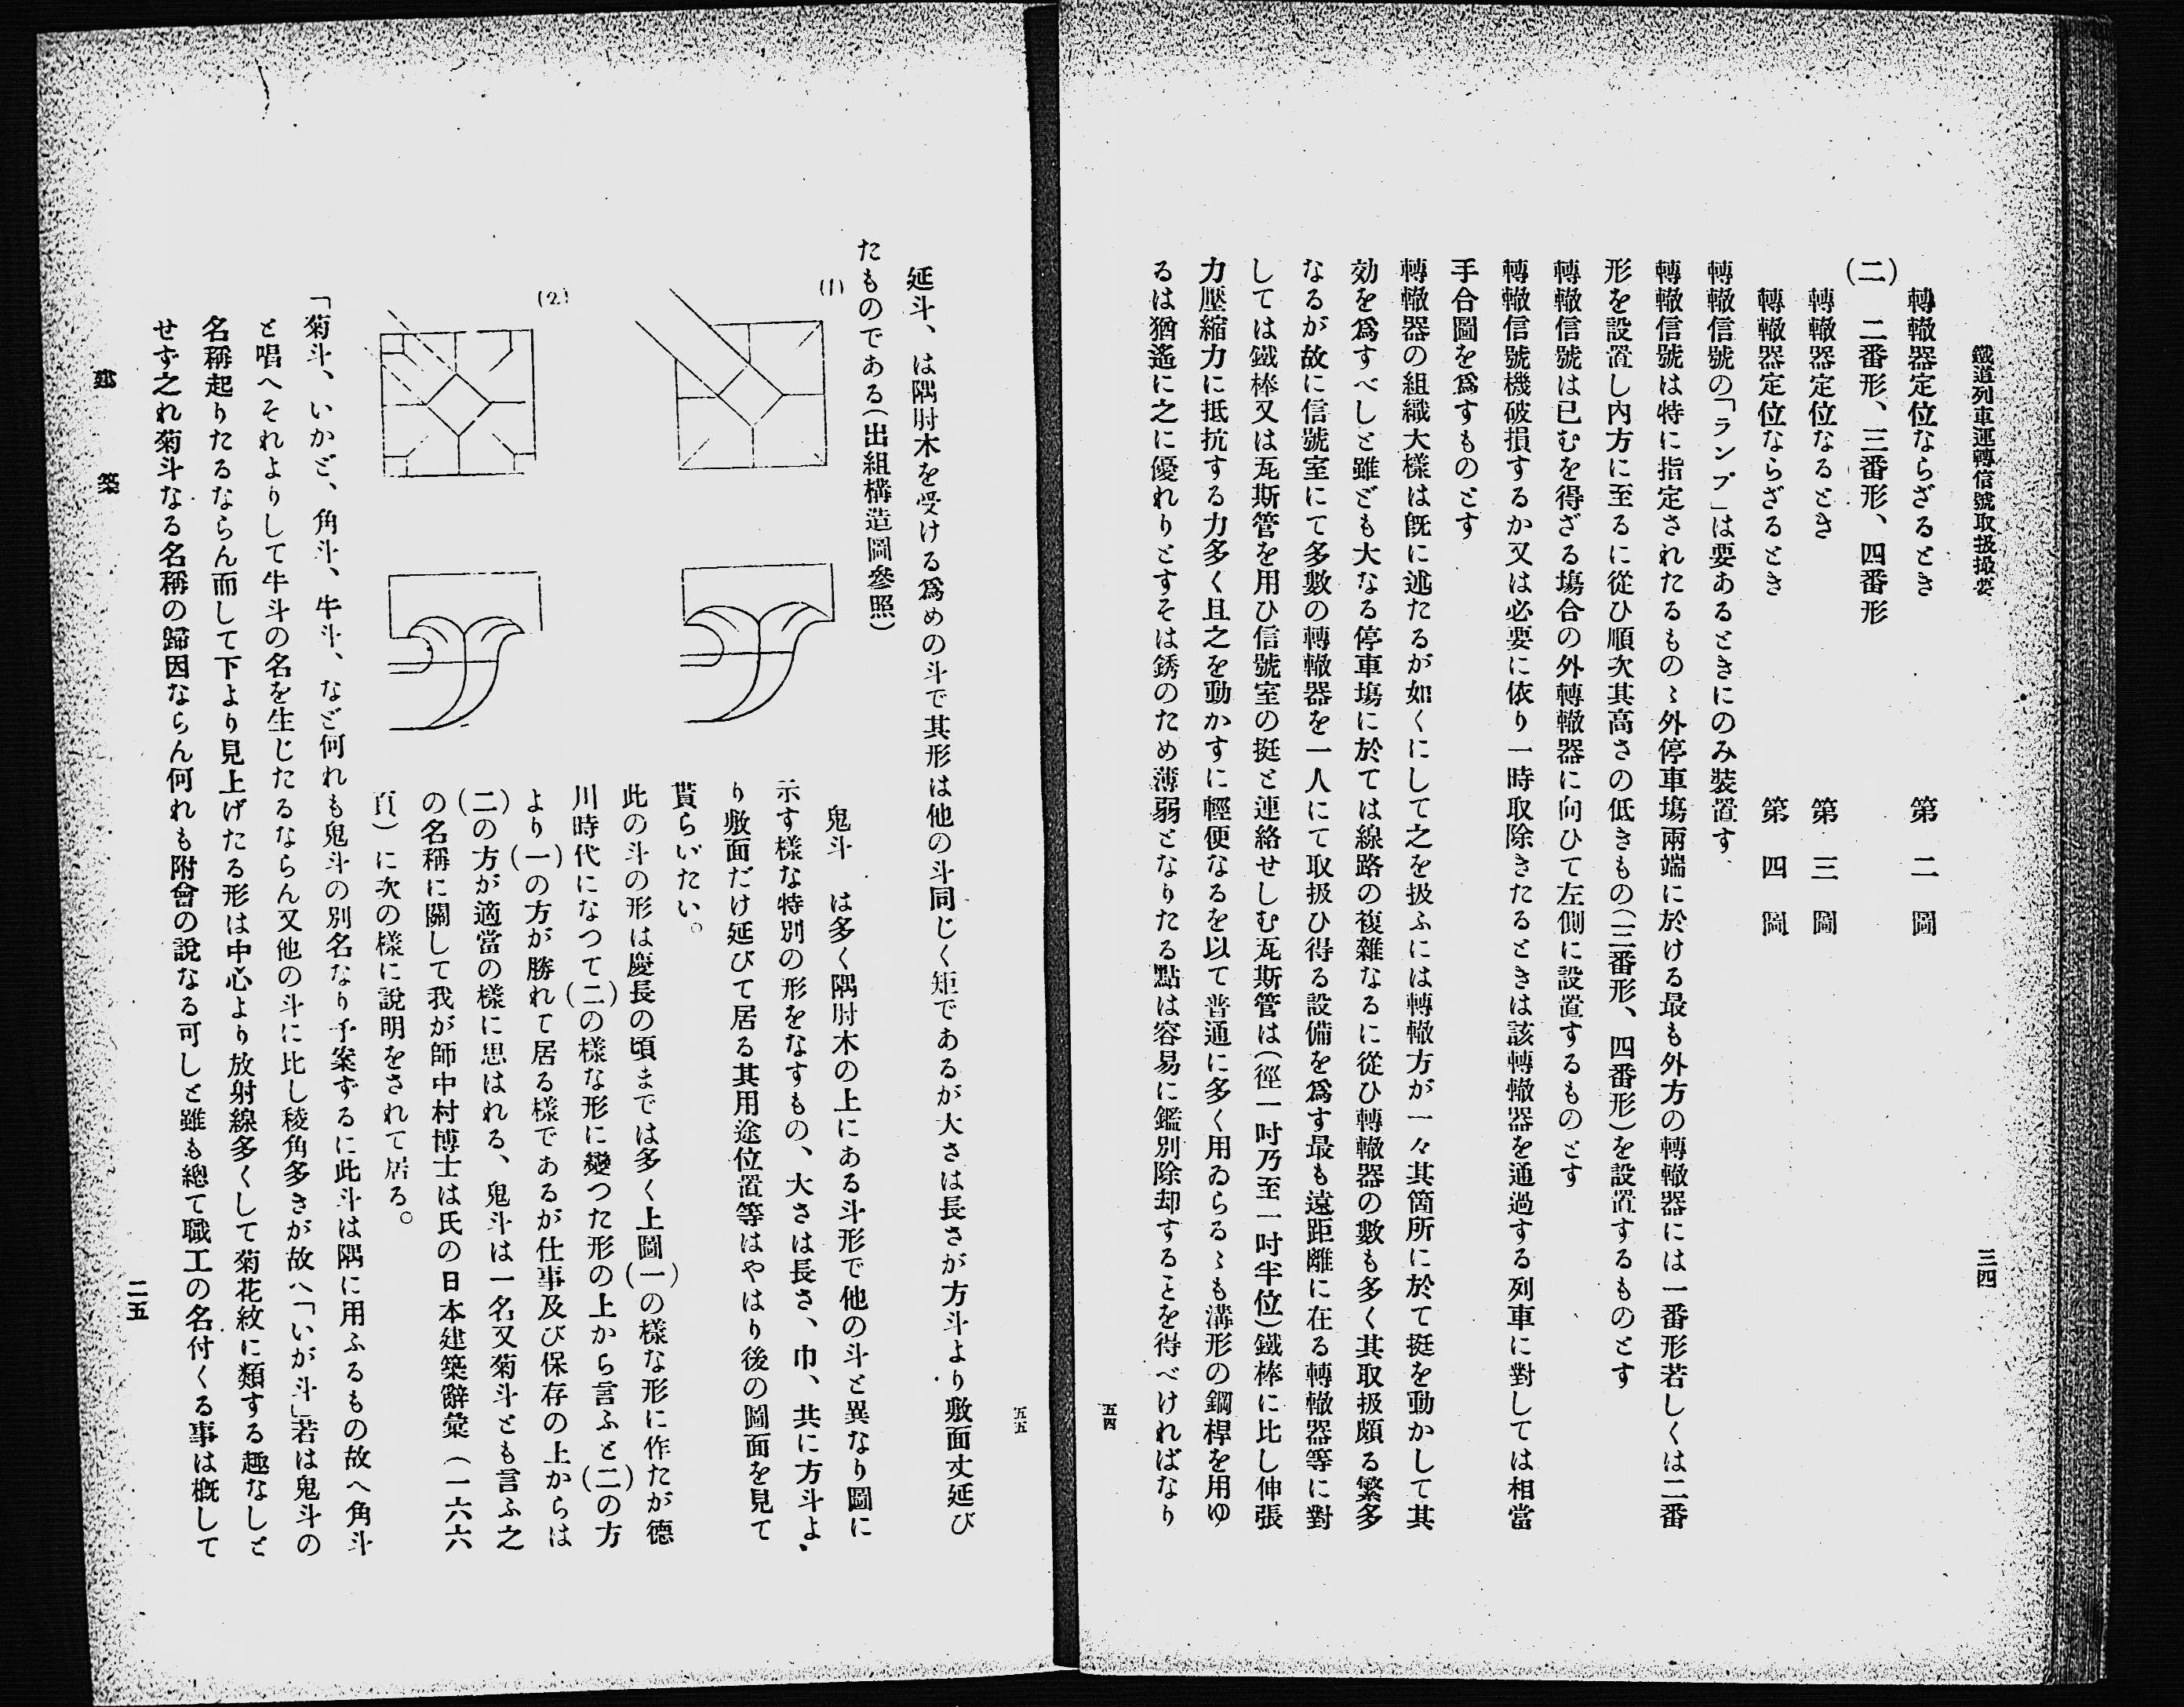 鐵道列車運轉信號取扱撮要
三四
轉轍器定位ならざるとき　第二圖
(二)　二番形、三番形、四番形
轉轍器定位なるとき　第三圖
轉轍器定位ならざるとき　第四圖
轉轍信號の「ランプ」は要あるときにのみ裝置す
轉轍信號は特に指定されたるものゝ外停車塲兩端に於ける最も外方の轉轍器には一番形若しくは二番
形を設置し內方に至るに從ひ順次其高さの低きもの(三番形、四番形)を設置するものとす
轉轍信號は已むを得ざる塲合の外轉轍器に向ひて左側に設置するものとす
轉轍信號機破損するか又は必要に依り一時取除きたるときは該轉轍器を通過する列車に對しては相當
手合圖を爲すものとす
轉轍器の組織大樣は旣に述たるが如くにして之を扱ふには轉轍方が一々其箇所に於て挺を動かして其
効を爲すべしと雖ども大なる停車塲に於ては線路の複雜なるに從ひ轉轍器の數も多く其取扱頗る繁多
なるが故に信號室にて多數の轉轍器を一人にて取扱ひ得る設備を爲す最も遠距離に在る轉轍器等に對
しては鐵棒又は瓦斯管を用ひ信號室の挺と連絡せしむ瓦斯管は(徑一吋乃至一吋半位)鐵棒に比し伸張
力壓縮力に抵抗する力多く且之を動かすに輕便なるを以て普通に多く用ゐらるゝも溝形の鋼桿を用ゆ
るは猶遙に之に優れりとすそは銹のため薄弱となりたる點は容易に鑑別除却することを得べければなり
五四
五五
延斗、は隅肘木を受ける爲めの斗で其形は他の斗同じく矩であるが大さは長さが方斗より敷面丈延び
たものである(出組構造圖參照)
(1)
(2)
鬼斗　は多く隅肘木の上にある斗形で他の斗と異なり圖に
示す樣な特別の形をなすもの、大さは長さ、巾、共に方斗よ
り敷面だけ延びて居る其用途位置等はやはり後の圖面を見て
貰らいたい。
此の斗の形は慶長の頃までは多く上圖(一)の樣な形に作たが德
川時代になつて(二)の樣な形に變つた形の上から言ふと(二)の方
より(一)の方が勝れて居る樣であるが仕事及び保存の上からは
(二)の方が適當の樣に思はれる、鬼斗は一名又菊斗とも言ふ之
の名稱に關して我が師中村博士は氏の日本建築辭彙(一六六
頁)に次の樣に說明をされて居る。
「菊斗、いかど、角斗、牛斗、など何れも鬼斗の別名なり予案ずるに此斗は隅に用ふるもの故へ角斗
と唱へそれよりして牛斗の名を生じたるならん又他の斗に比し稜角多きが故へ「いが斗」若は鬼斗の
名稱起りたるならん而して下より見上げたる形は中心より放射線多くして菊花紋に類する趣なしと
せず之れ菊斗なる名稱の歸因ならん何れも附會の說なる可しと雖も總て職工の名付くる事は槪して
建築
二五